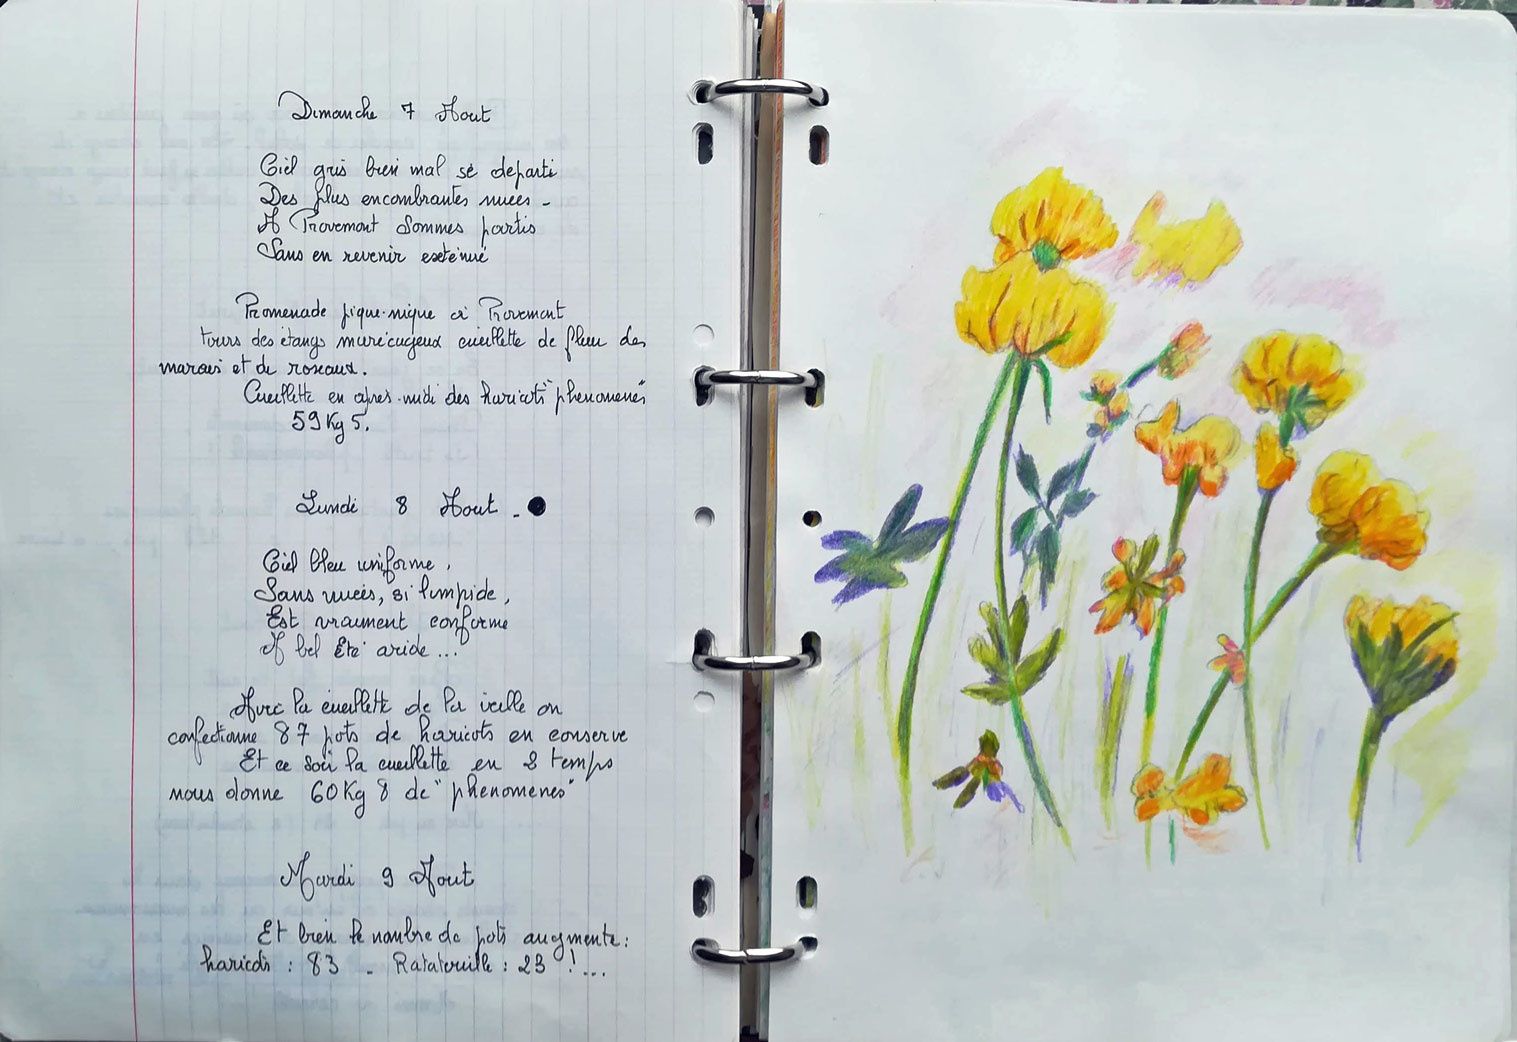 Dimanche 7 Aout
Ciel gris bien mal se departi
Des plus encombrantes nuees -
A Provemont Sommes partis
Sans en revenir exténué
Promenade pique-nique à Provemont
tours des étangs marécageux cueillette de fleur des
marais et de roseaux.
Cueillette en après-midi des haricots "phenomenes"
59Kg5.
Lundi 8 Aout -
Ciel bleu uniforme,
Sans nuées, si limpide,
Est vraiment conforme
A bel Eté aride...
Avec la cueillette de la veille on
confectionne 87 pots de haricots en conserve
Et ce soir la cueillette en 2 temps
nous donne 60Kg8 de "phenomenes"
Mardi 9 Aout
Et bien le nombre de pots augmente :
haricots : 83 - Ratatouille : 23 !...